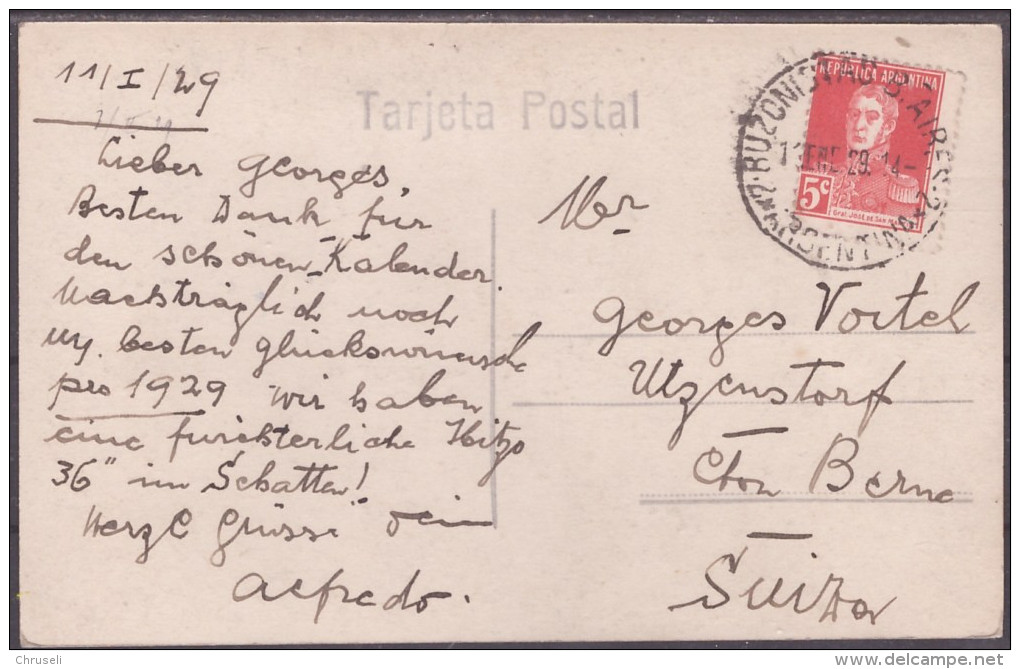 11/I/29
Tarjeta Postal
Lieber Georges,
Besten Dank für
den schönen Kalender.
Nachträglich noch
my. besten glückswünsche
pro 1929 wir haben
eine fürchterliche Hitze
36° im Schatten!
Herzl Grüsse Dein
Alfredo.
REPUBLICA ARGENTINA
5c
Gral. José de San
BUZONISTAS B. AIRES
11 ENE 29. 14-
ARGENTINA
Mr
Georges Vortel
Utzenstorf
Cton Berne
Suiza
Chruseli
www.delcampe.net